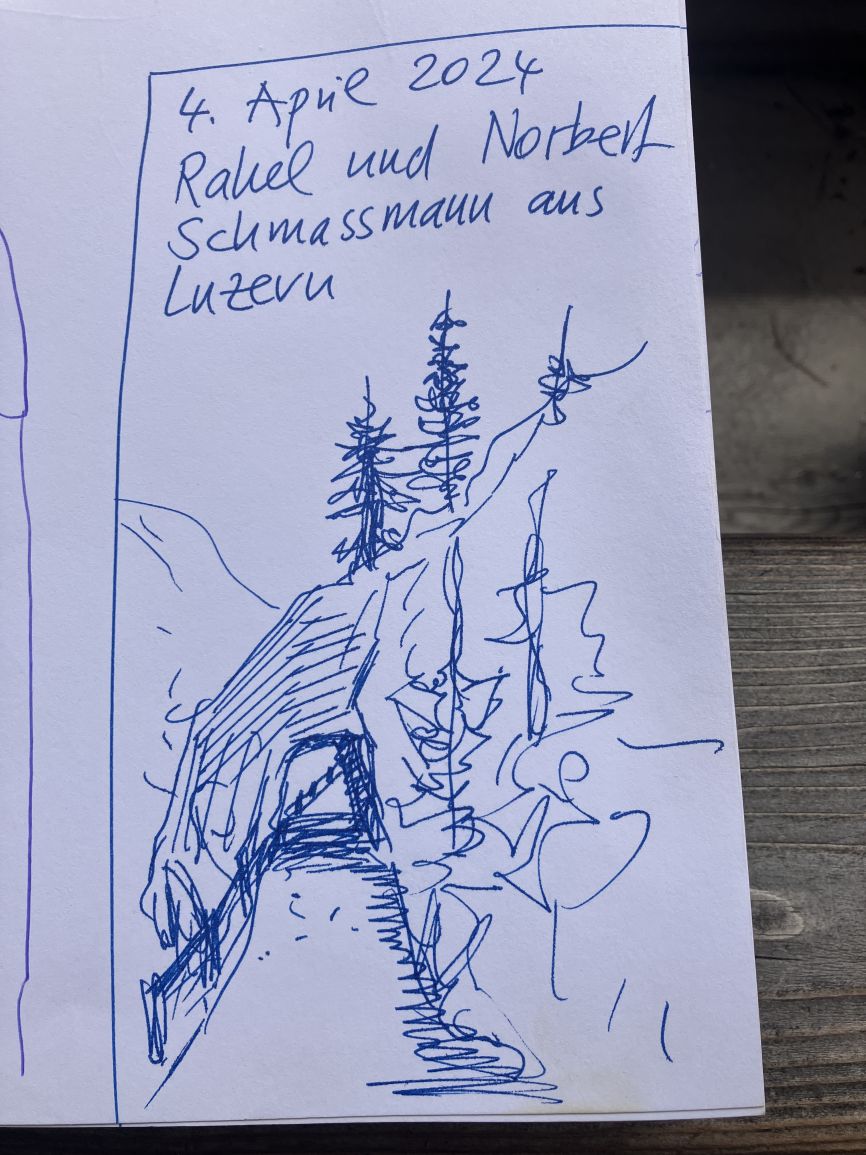 4. April 2024
Rahel und Norbert
Schmassmann aus
Luzern